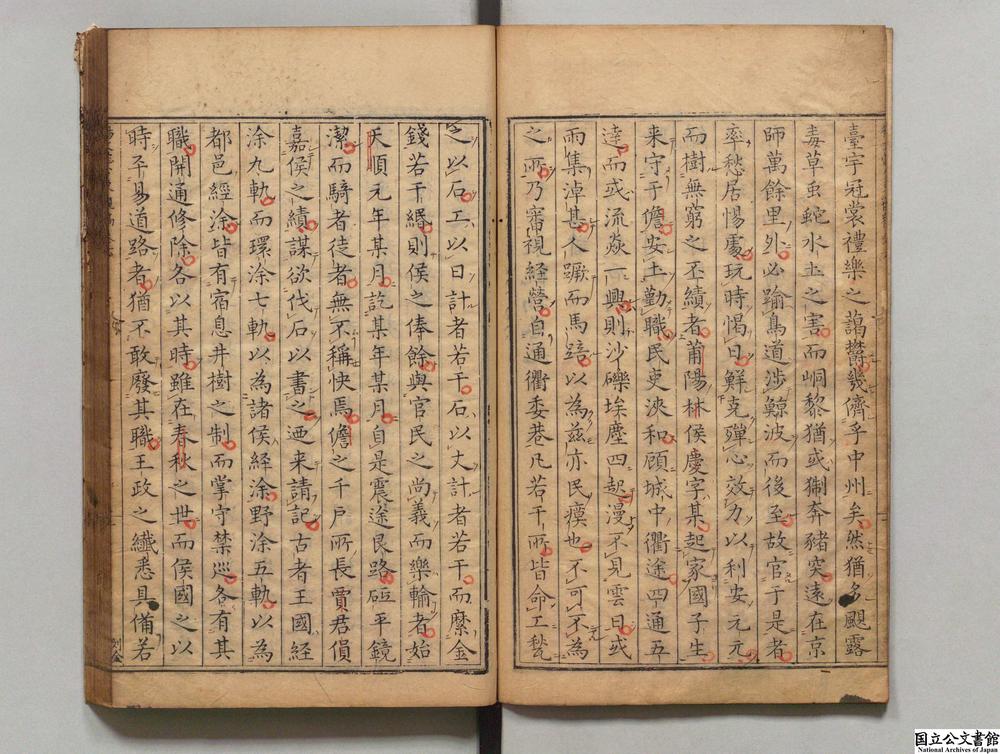 臺宇冠裳禮樂之藹欝幾儕乎中州矣然猶多颶露
毒草虫蛇水土之害而峒黎猶或猘奔豬突遠在京
師萬餘里外必踰鳥道涉鯨波而後至故官于是者
率愁居惕處玩時愒日鮮克殫心效力以利安元元
而樹無窮之丕績者莆陽林侯慶字某起家國子生
来守于儋安土勤職民吏浹和顧城中衢途四通五
達而或流焱一興則沙礫埃塵四起漫不見雲日或
雨集淖甚人蹶而馬踣以為兹亦民瘼也不可不為
之所乃審視経營自通衢委巷凡若干所皆命工甃
之以石工以日計者若干石以丈計者若干而縻金
錢若干緡則侯之俸餘與官民之尚義而樂輸者始
天順元年某月訖某年某月自是震途艮路砥平鏡
潔而騎者徒者無不稱快焉儋之千戶所長賈君傊
嘉侯之績謀欲伐石以書之迺来請記古者王國経
涂九軌而環涂七軌以為諸侯経涂野涂五軌以為
都邑經涂皆有宿息井樹之制而掌守禁巡各有其
職開通修除各以其時雖在春秋之世而侯國之以
時平易道路者猶不敢廢其職王政之纖悉具備若
国立公文書館
National Archives of Japan